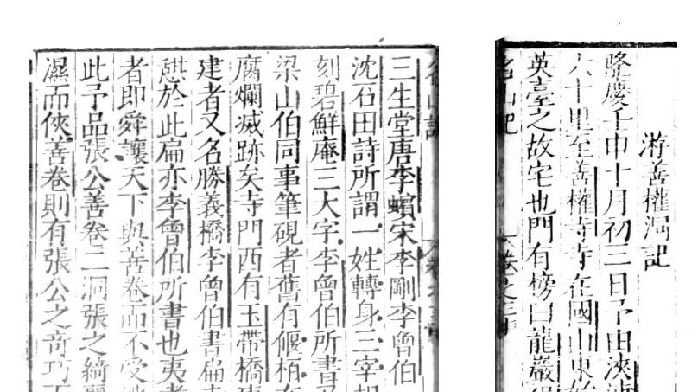 游善權洞記
隆慶壬申十月初三日予由
六十里至善權寺寺在國山東
英臺之故宅也門有榜曰龍巖
名山記
卷之三
三生堂唐李蠙宋李剛李曾伯
沈石田詩所謂一姓轉身三宰
刻碧鮮庵三大字李曾伯所書
梁山伯同事筆硯者舊有偃柏
腐爛滅跡矣寺門西有玉帶橋
建者又名勝義橋李曾伯書扁
憇於此扁亦李曾伯所書也夷
者即舜讓天下與善卷而不受
此予品張公善卷二洞張之綺
濕而俠善卷則有張公之奇巧